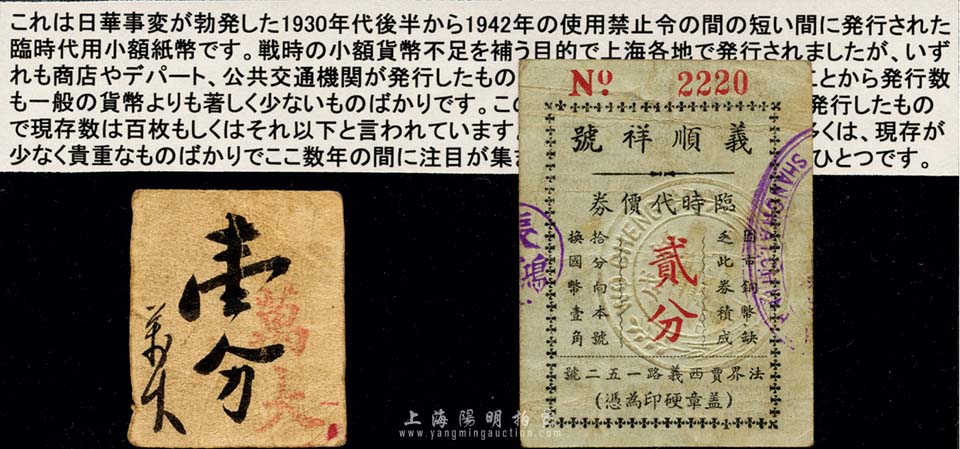 これは日華事変が勃発した1930年代後半から1942年の使用禁止令の間の短い間に発行された
臨時代用小額紙幣です。戦時の小額貨幣不足を補う目的で上海各地で発行されましたが、いず
れも商店やデパート、公共交通機関が発行したもの
ことから発行数
も一般の貨幣よりも著しく少ないものばかりです。この
発行したもの
で現存数は百枚もしくはそれ以下と言われています
くは、現存が
少なく貴重なものばかりでここ数年の間に注目が集ま
ひとつです。
No 2220
義順祥號
臨時代價券
因市銅幣缺
乏此券積成
貳分
拾分向本號
換國幣壹角
法界賈西義路一五二號
(蓋章硬印為憑)
長鴻
SHANGHAI.CHINA
壹分
萬大
萬大
上海陽明拍賣
www.yangmingauction.com